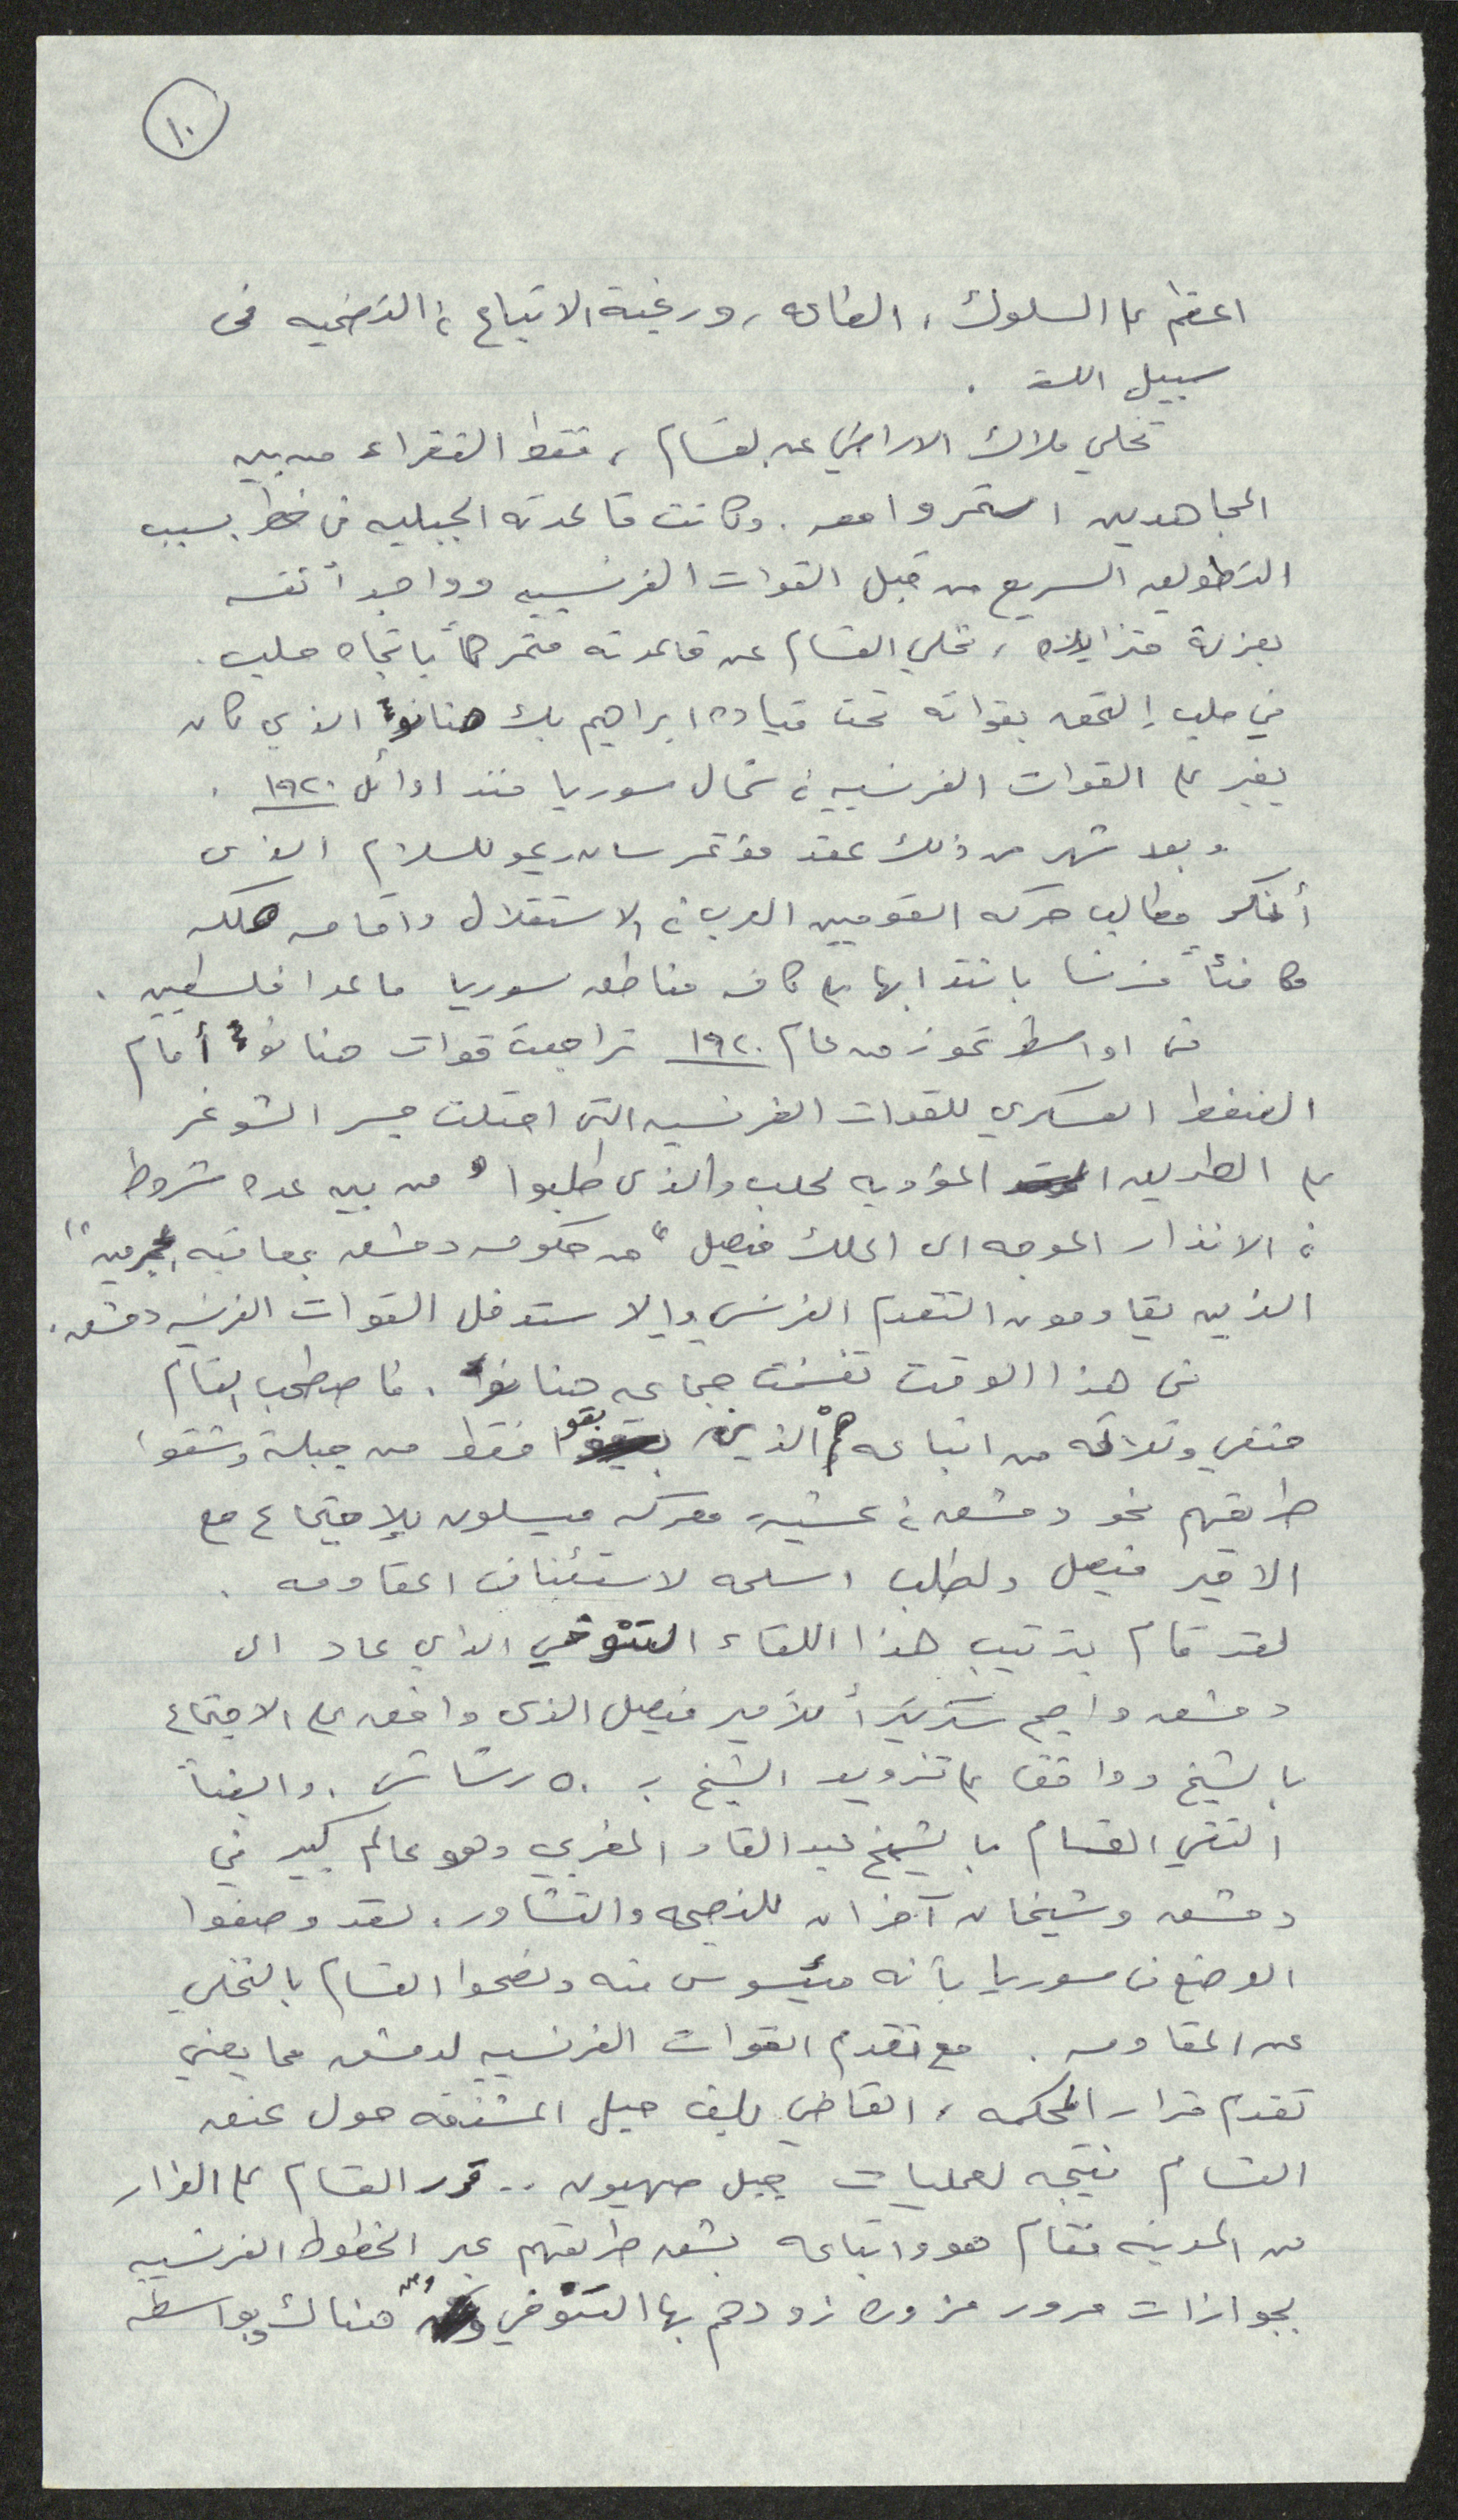 ١٠
اعظم على السلوك، الطاعه، ورغبة الاتباع في التضحيه في
سبيل الله .
تخلي ملاك الاراضي عن القسام، فقط الفقراء من بين
المجاهدين استمروا معه. وكانت قاعدته الجبليه في خطر بسبب
التطويق السريع من قبل القوات الفرنسيه وواجداً نفسه
بعزلة متزايده، تخلي القسام عن قاعدته متحركاً باتجاه حلب.
في حلب إلتحق بقواته تحت قيادة ابراهيم بك هنانو الذي كان
يغير على القوات الفرنسيه في شمال سوريا منذ اوائل ١٩٢٠ .
وبعد شهر من ذلك عقد مؤتمر سان ريمو للسلام الذي
أنكر مطالب حركه القوميين العرب في الاستقلال واقامه مملكه
مكافئاً فرنسا بانتدابها على كافه مناطق سوريا ماعدا فلسطين .
في اواسط تموز من عام ١٩٢٠ تراجعت قوات هنانو أمام
الضغط العسكري للقوات الفرنسيه التي احتلت جسر الشوغر
على الطريق المؤديه لحلب والذي طلبوا من بين عده شروط
في الانذار الموجه الى الملك فيصل "من حكومه دمشق بمعاقبه المجرمين"
الذين يقاومون التقدم الفرنسي وإلا ستدخل القوات الفرنسيه دمشق.
في هذا الوقت تفسخت جماعه هنانو. فاصطحب القسام
حنفي وثلاثه من اتباعه هم الذين بقوا فقط من جبلة وشقوا
طريقهم نحو دمشق في عشية معركه ميسلون للإجتماع مع
الامير فيصل ولطلب اسلحه لاستئناف المقاومه .
لقد قام بترتيب هذا اللقاء التنوخي الذي عاد الى
دمشق واصبح سكرتيراً للأمير فيصل الذي وافق على الاجتماع
بالشيخ ووافق على تزويد الشيخ بـ ٥٠ رشاش. وايضاً
التقي القسام بالشيخ عبد القادر المغربي وهو عالم كبير في
دمشق وشيخان آخران للنصيحه والتشاور. لقد وصفوا
الوضع في سوريا بأنه ميئوس منه ونصحوا القسام بالتخلي
عن المقاومه . مع تقدم القوات الفرنسيه لدمشق مما يعني
تقدم قرار المحكمه، القاضي بلف حبل المشنقه حول عنق
القسام نتيجه لعمليات جبل صهيون .. قرر القسام على الفرار
من المدينه فقام هو واتباعه بشق طريقهم عبر الخطوط الفرنسيه
بجوازات مرور مزوره زودهم بها التنوخي ومن هناك بواسطه